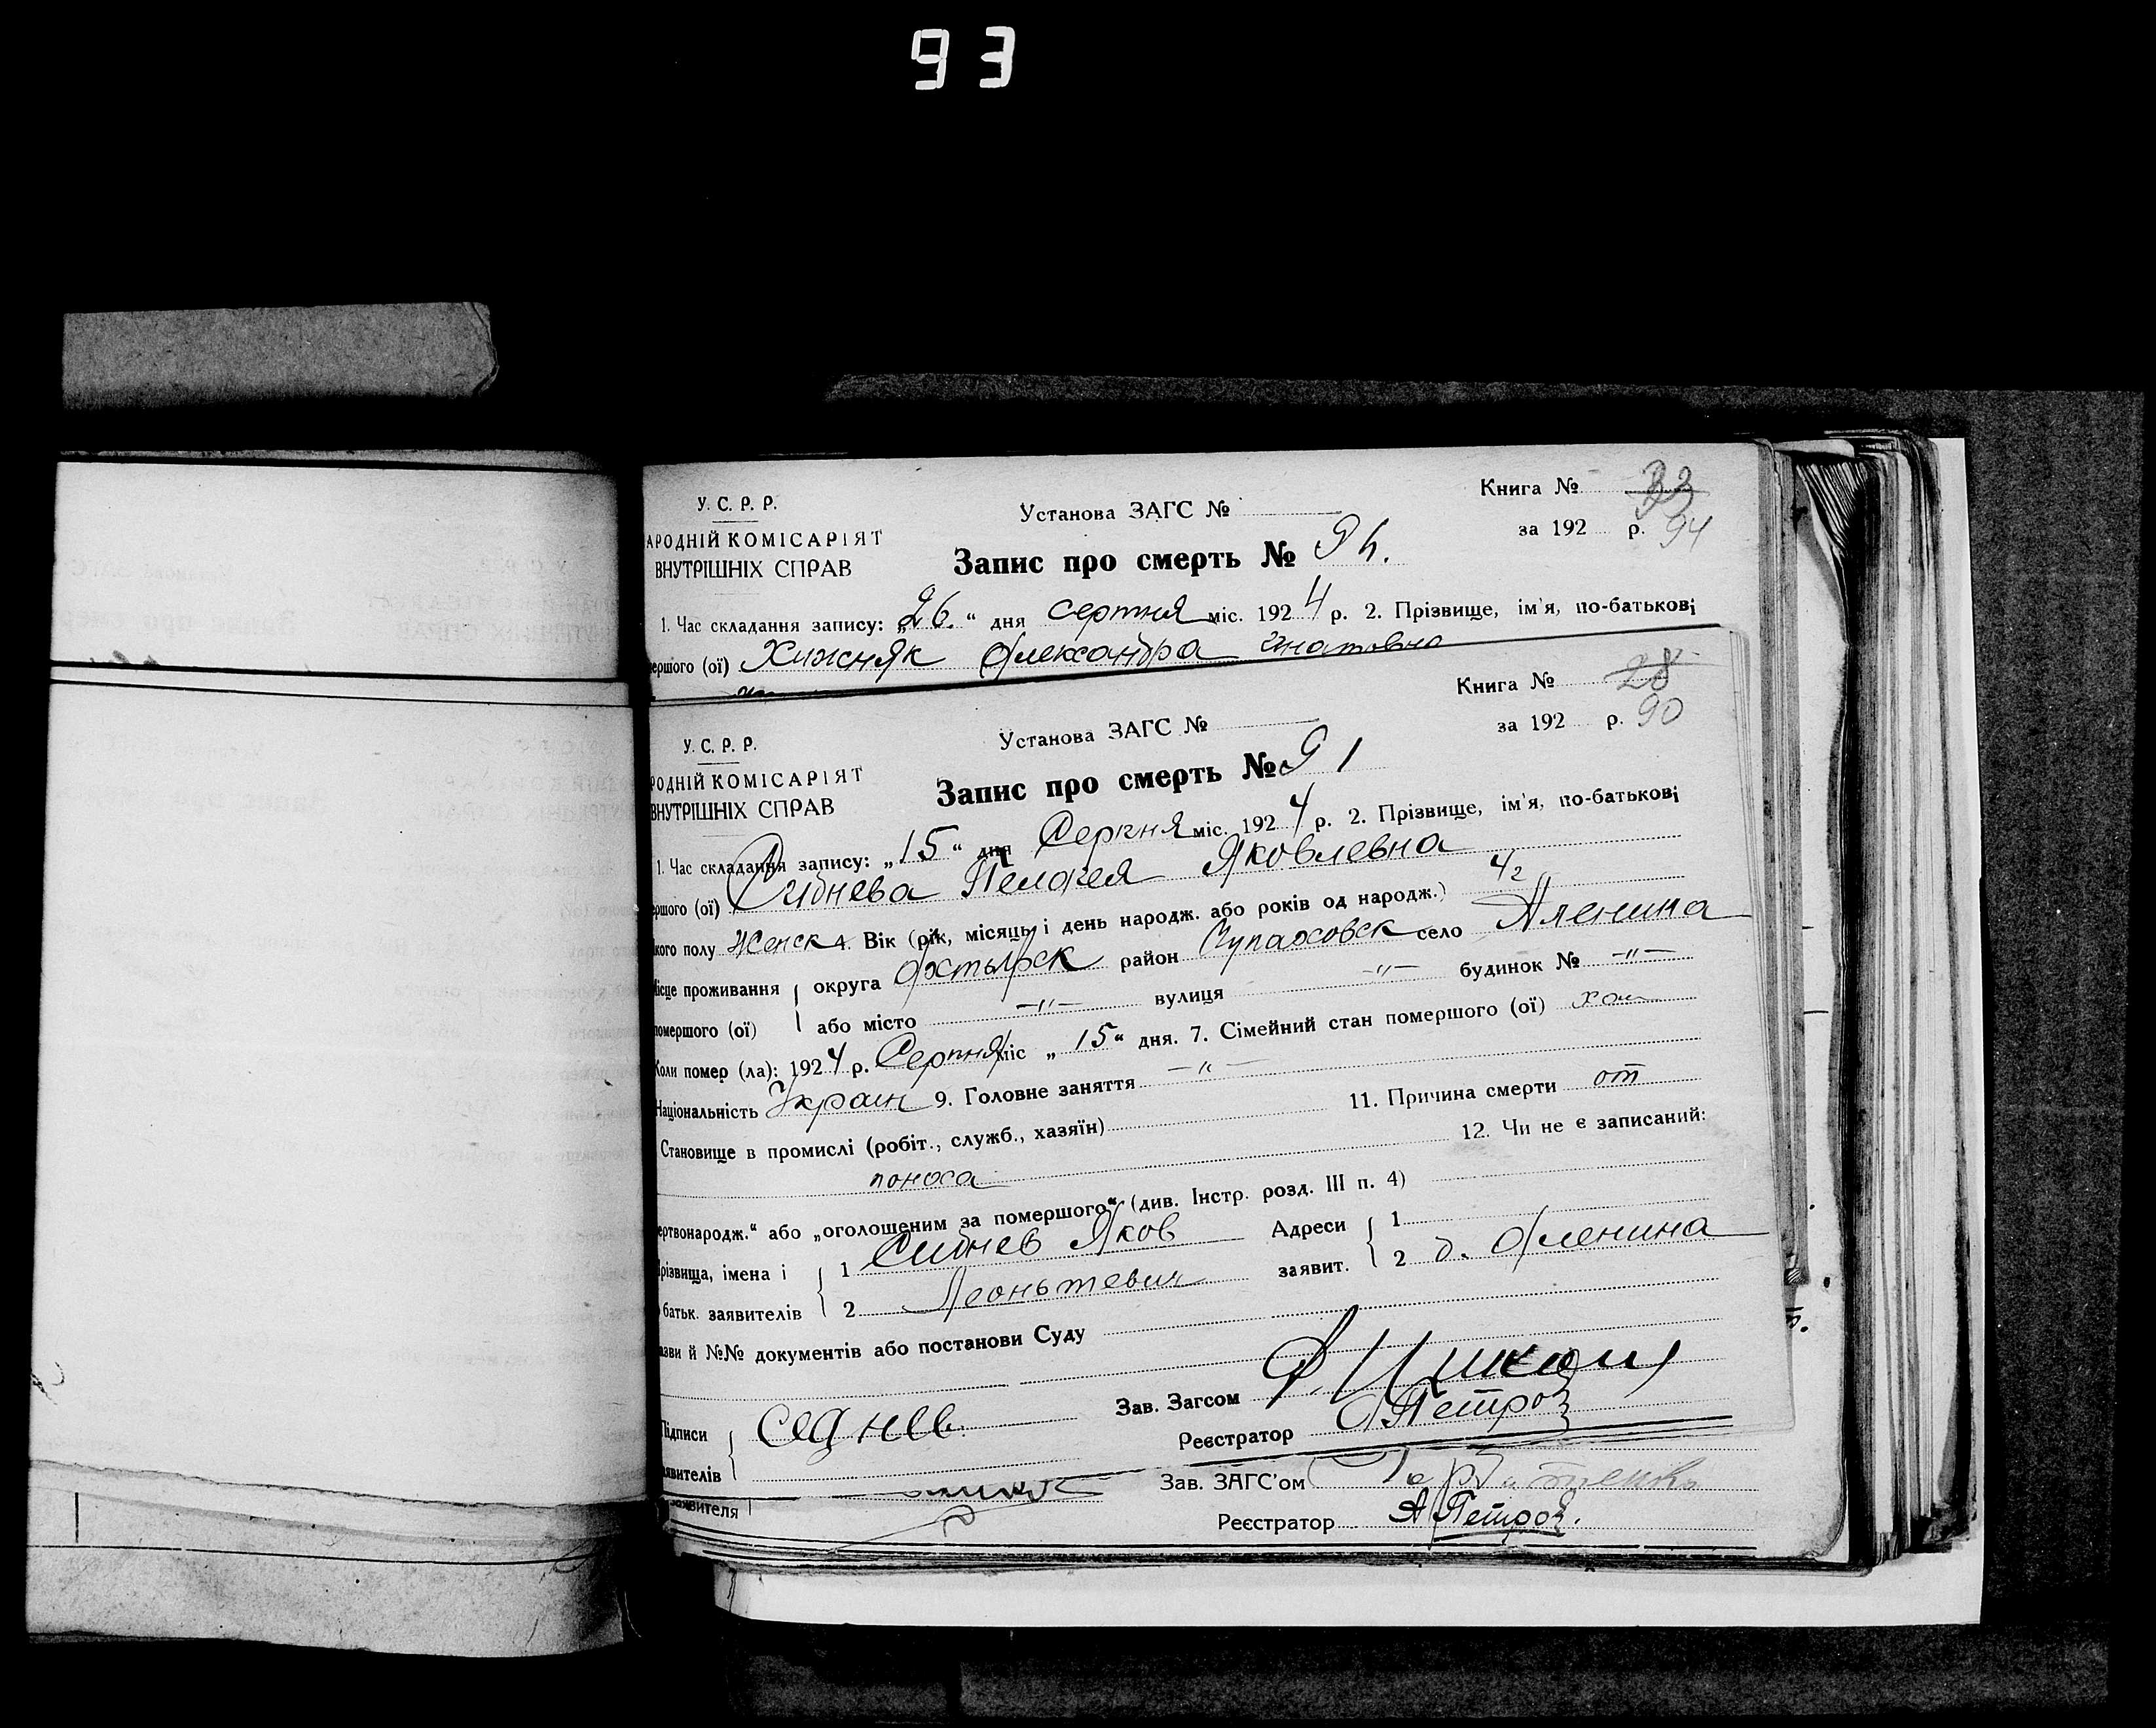 93
У. С. Р. Р.
Установа ЗАГС №
Книга № 33
АРОДНІЙ КОМІСАРІЯТ
за 192 р. 94
ВНУТРІШНІХ СПРАВ
Запис про смерть № 94.
1. Час складання запису: „26.“ дня серпня міс. 1924 р. 2. Прізвище, ім'я, по-батькові
ершого (ої) Хижняк Александра Гнатовна
Книга № 28
У. С. Р. Р.
Установа ЗАГС №
за 192 р. 90
РОДНІЙ КОМІСАРІЯТ
ВНУТРІШНІХ СПРАВ
Запис про смерть № 91
1. Час складання запису: „15“ дня Серпня міс. 1924 р. 2. Прізвище, ім'я, по-батькові
ершого (ої) Сиднева Пелагея Яковлевна
кого полу Женск 4. Вік (рік, місяць і день народж. або років од народж.) 4 г
Місце проживання округа Охтырск район Чупаховск село Аленина
помершого (ої) або місто -"- вулиця -"- будинок № -"-
Коли помер (ла): 1924 р. Серпня міс „15“ дня. 7. Сімейний стан помершого (ої)
Національність Украин 9. Головне заняття -"-
Становище в промислі (робіт., служб., хазяїн) 11. Причина смерти от
поноса 12. Чи не є записаний:
ертвонародж.“ або „оголошеним за помершого“ (див. Інстр. розд. III п. 4)
різвища, імена і 1 Сиднев Яков Адреси 1
батьк. заявителів 2 Леоньтевич заявит. 2 д. Аленина
азви й №№ документів або постанови Суду
Зав. Загсом
Підписи Седнев
Реєстратор А Петров
аявителів
Зав. ЗАГС'ом
заявителя
Реєстратор А Петров.